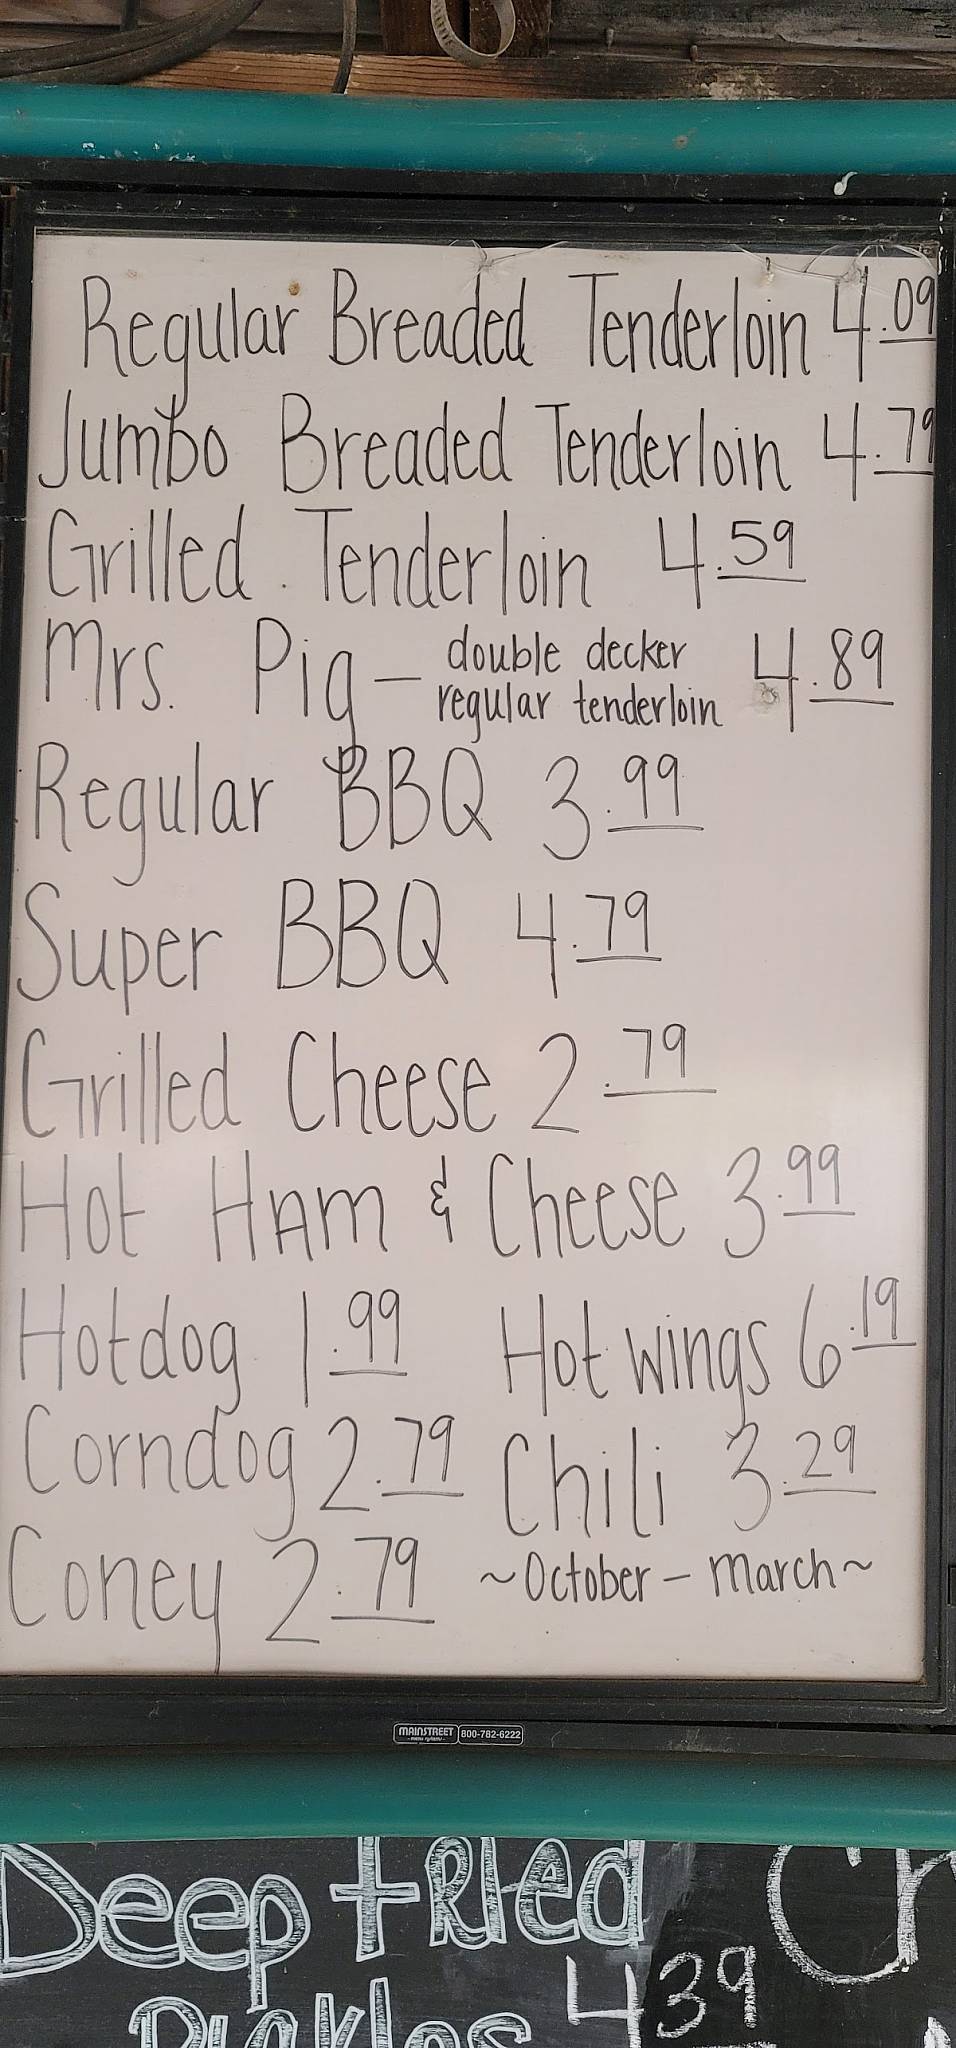 Regular Breaded Tenderloin 4.09
Jumbo Breaded Tenderloin 4.79
Grilled Tenderloin 4.59
Mrs. Pig - double decker regular tenderloin 4.89
Regular BBQ 3.99
Super BBQ 4.79
Grilled Cheese 2.79
Hot Ham & Cheese 3.99
Hotdog 1.99 Hot wings 6.19
Corndog 2.79 Chili 3.29
Coney 2.79 ~October - March~
MAINSTREET 800-782-6222
Deep Fried
Pickles 4.39